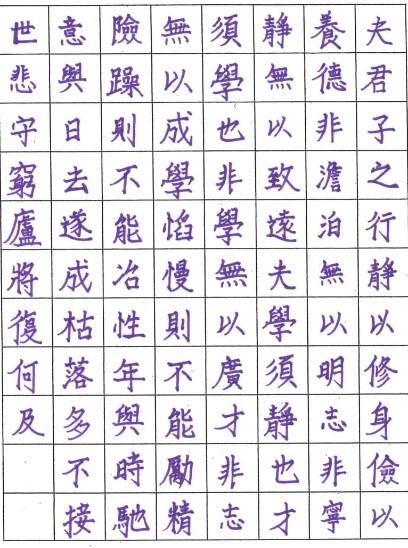 夫君子之行靜以修身儉以
養德非澹泊無以明志非寧
靜無以致遠夫學須靜也才
須學也非學無以廣才非志
無以成學慆慢則不能勵精
險躁則不能冶性年與時馳
意與日去遂成枯落多不接
世悲守窮廬將復何及